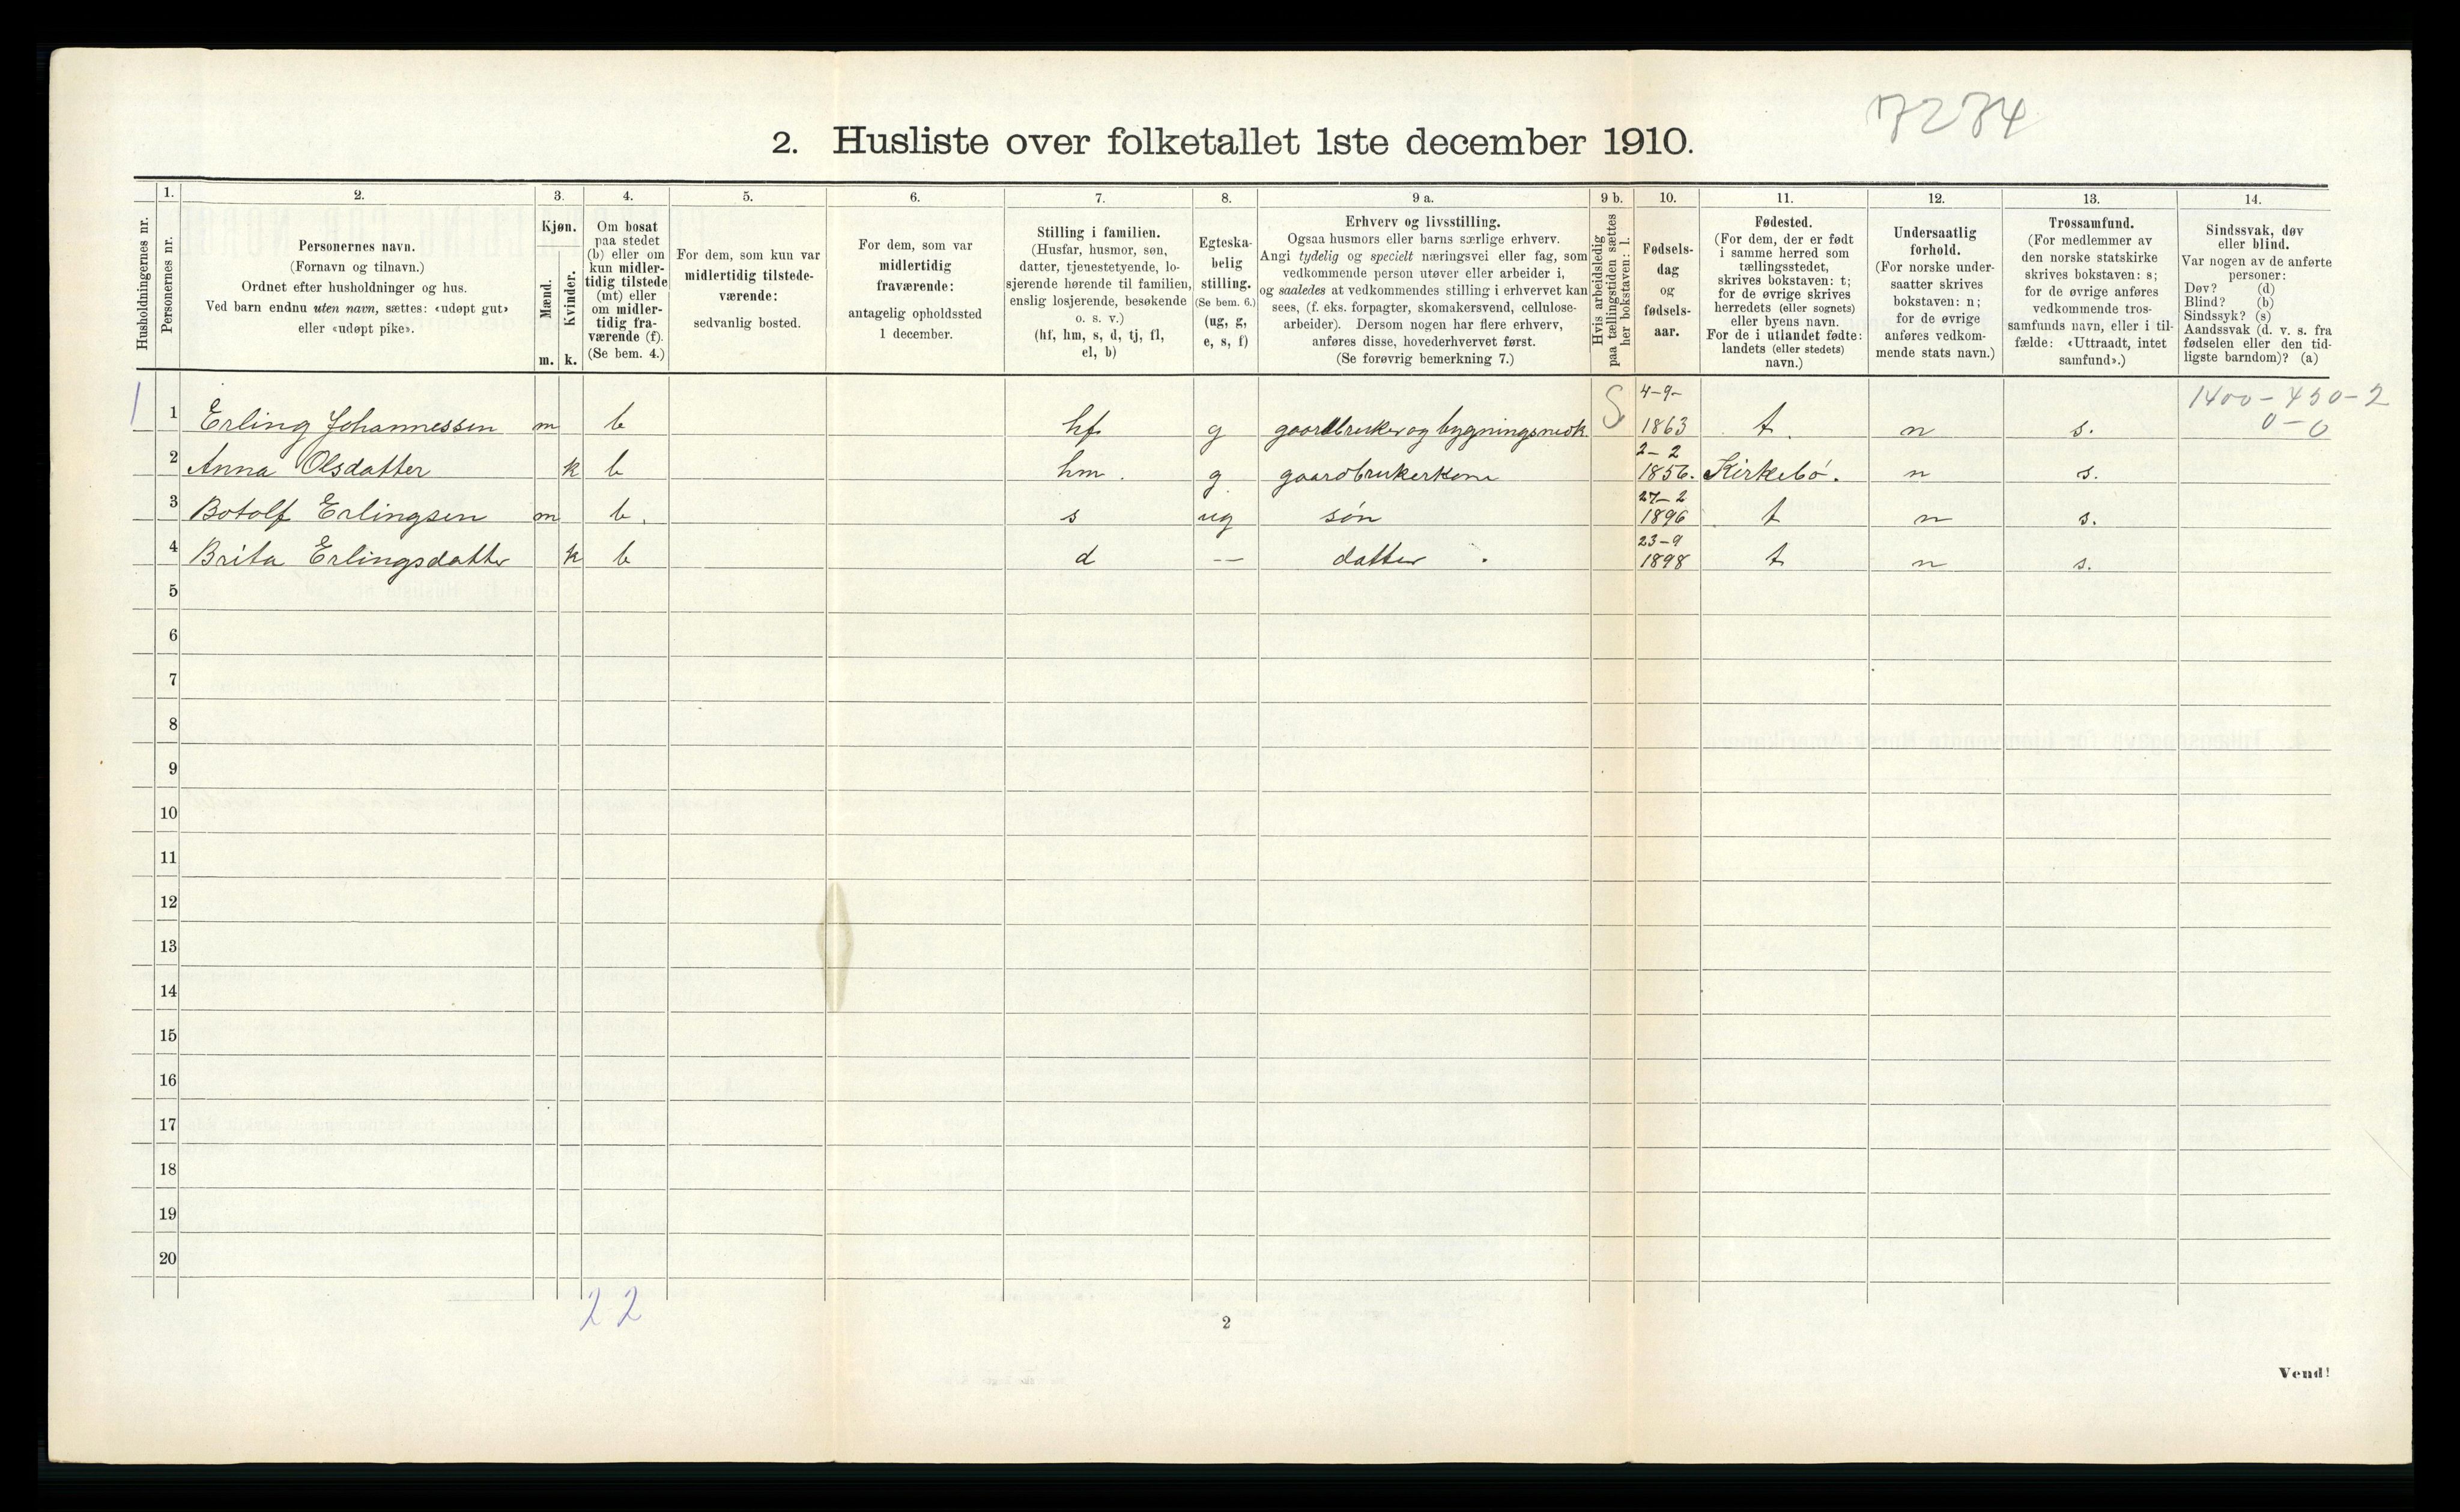 7284
2. Husliste over folketallet 1ste december 1910.
Husholdningernes nr.
1.
Personernes nr.
2.
Personernes navn.
(Fornavn og tilnavn.)
Ordnet efter husholdninger og hus.
Ved barn endnu uten navn, sættes: «udøpt gut»
eller «udøpt pike».
3.
Kjøn.
Mænd.
Kvinder.
m. k.
4.
Om bosat
paa stedet
(b) eller om
kun midler-
tidig tilstede
(mt) eller
om midler-
tidig fra-
værende (f).
(Se bem. 4.)
5.
For dem, som kun var
midlertidig tilstede-
værende:
sedvanlig bosted.
6.
For dem, som var
midlertidig
fraværende:
antagelig opholdssted
1 december.
7.
Stilling i familien.
(Husfar, husmor, søn,
datter, tjenestetyende, lo-
sjerende hørende til familien,
enslig losjerende, besøkende
o. s. v.)
(hf, hm, s, d, tj, fl,
el, b)
8.
Egteska-
belig
stilling.
(Se bem. 6.)
(ug, g,
e, s, f)
9 a.
Erhverv og livsstilling.
Ogsaa husmors eller barns særlige erhverv.
Angi tydelig og specielt næringsvei eller fag, som
vedkommende person utøver eller arbeider i,
og saaledes at vedkommendes stilling i erhvervet kan
sees, (f. eks. forpagter, skomakersvend, cellulose-
arbeider). Dersom nogen har flere erhverv,
anføres disse, hovederhvervet først.
(Se forøvrig bemerkning 7.)
9 b.
Hvis arbeidsledig
paa tællingstiden sættes
her bokstaven: l.
10.
Fødsels-
dag
og
fødsels-
aar.
11.
Fødested.
(For dem, der er født
i samme herred som
tællingsstedet,
skrives bokstaven: t;
for de øvrige skrives
herredets (eller sognets)
eller byens navn.
For de i utlandet fødte:
landets (eller stedets)
navn.)
12.
Undersaatlig
forhold.
(For norske under-
saatter skrives
bokstaven: n;
for de øvrige
anføres vedkom-
mende stats navn.)
13.
Trossamfund.
(For medlemmer av
den norske statskirke
skrives bokstaven: s;
for de øvrige anføres
vedkommende tros-
samfunds navn, eller i til-
fælde: «Uttraadt, intet
samfund».)
14.
Sindssvak, døv
eller blind.
Var nogen av de anførte
personer:
Døv? (d)
Blind? (b)
Sindssyk? (s)
Aandssvak (d. v. s. fra
fødselen eller den tid-
ligste barndom)? (a)
1 1 Erling Johannessen m b hf g gaardbruker og bygningsnedk. S 4-9- 1863 t. n s. 1400-450-2
0-0
2 Anna Olsdatter k b hm. g gaardbrukerkone 2-2 1856. Kirkebö. n s.
3 Botolf Erlingsen m b. s ug søn 27-2 1896 t n s.
4 Brita Erlingsdatter k b d — datter 23-9 1898 t n s.
5
6
7
8
9
10
11
12
13
14
15
16
17
18
19
20
2 2
2
Vend!